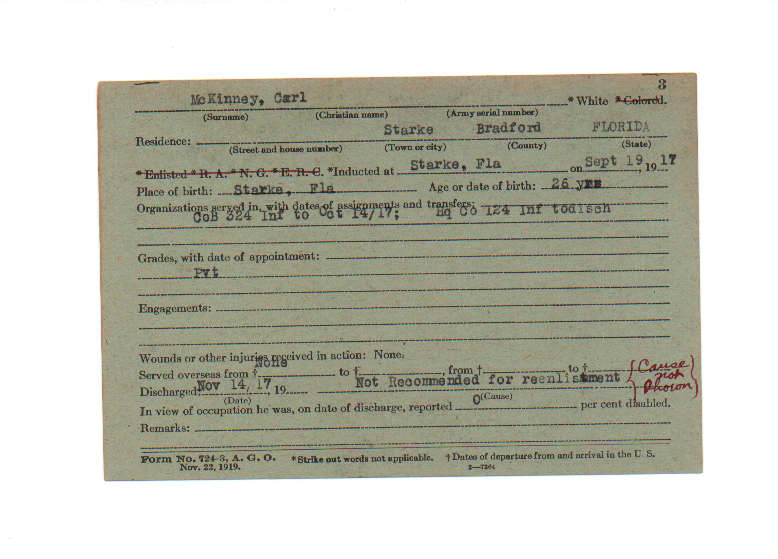 3
McKinney, Carl * White * Colored.
(Surname) (Christian name) (Army serial number)
Residence: Starke Bradford FLORIDA
(Street and house number) (Town or city) (County) (State)
* Enlisted * R. A. * N. G. * E. R. C. *Inducted at Starke, Fla on Sept 19, 1917
Place of birth: Starke, Fla Age or date of birth: 26 yrs
Organizations served in, with dates of assignments and transfers:
CoB 324 Inf to Oct 14/17; Hq Co 124 Inf todisch
Grades, with date of appointment:
Pvt
Engagements:
Wounds or other injuries received in action: None.
None
Served overseas from † to †, from † to †
Discharged Nov 14, 17, 19 Not Recommended for reenlistment (Cause not shown)
(Date) (Cause)
In view of occupation he was, on date of discharge, reported 0 per cent disabled.
Remarks:
Form No. 724-3, A. G. O. *Strike out words not applicable. † Dates of departure from and arrival in the U. S.
Nov. 22, 1919.